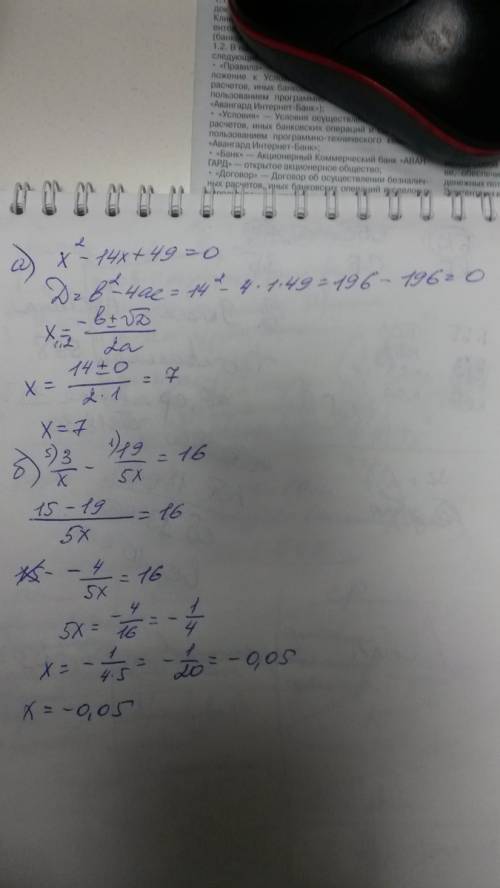 (банка
1.2. В н
следующи
• «Правила»
ложение к Усло
расчетов, иных бан
пользованием программн
«Авангард Интернет-Банк»);
• «Условия» — Условия осуществле
расчетов, иных банковских операций и
пользованием программно-технического
«Авангард Интернет-Банк»;
• «Банк» — Акционерный Коммерческий банк «АВАН-
ГАРД» — открытое акционерное общество;
• «Договор» — Договор об осуществлении безналич-
ных расчетов, иных банковских операций
а) x² - 14x + 49 = 0
D = b² - 4ac = 14² - 4 · 1 · 49 = 196 - 196 = 0
x₁,₂ = (-b ± √D) / 2a
x = (14 ± 0) / (2 · 1) = 7
x = 7
б) ⁵⁾3/x - ¹⁾19/5x = 16
(15 - 19) / 5x = 16
- 4/5x = 16
5x = -4/16 = - 1/4
x = - 1/(4·5) = - 1/20 = - 0,05
x = - 0,05